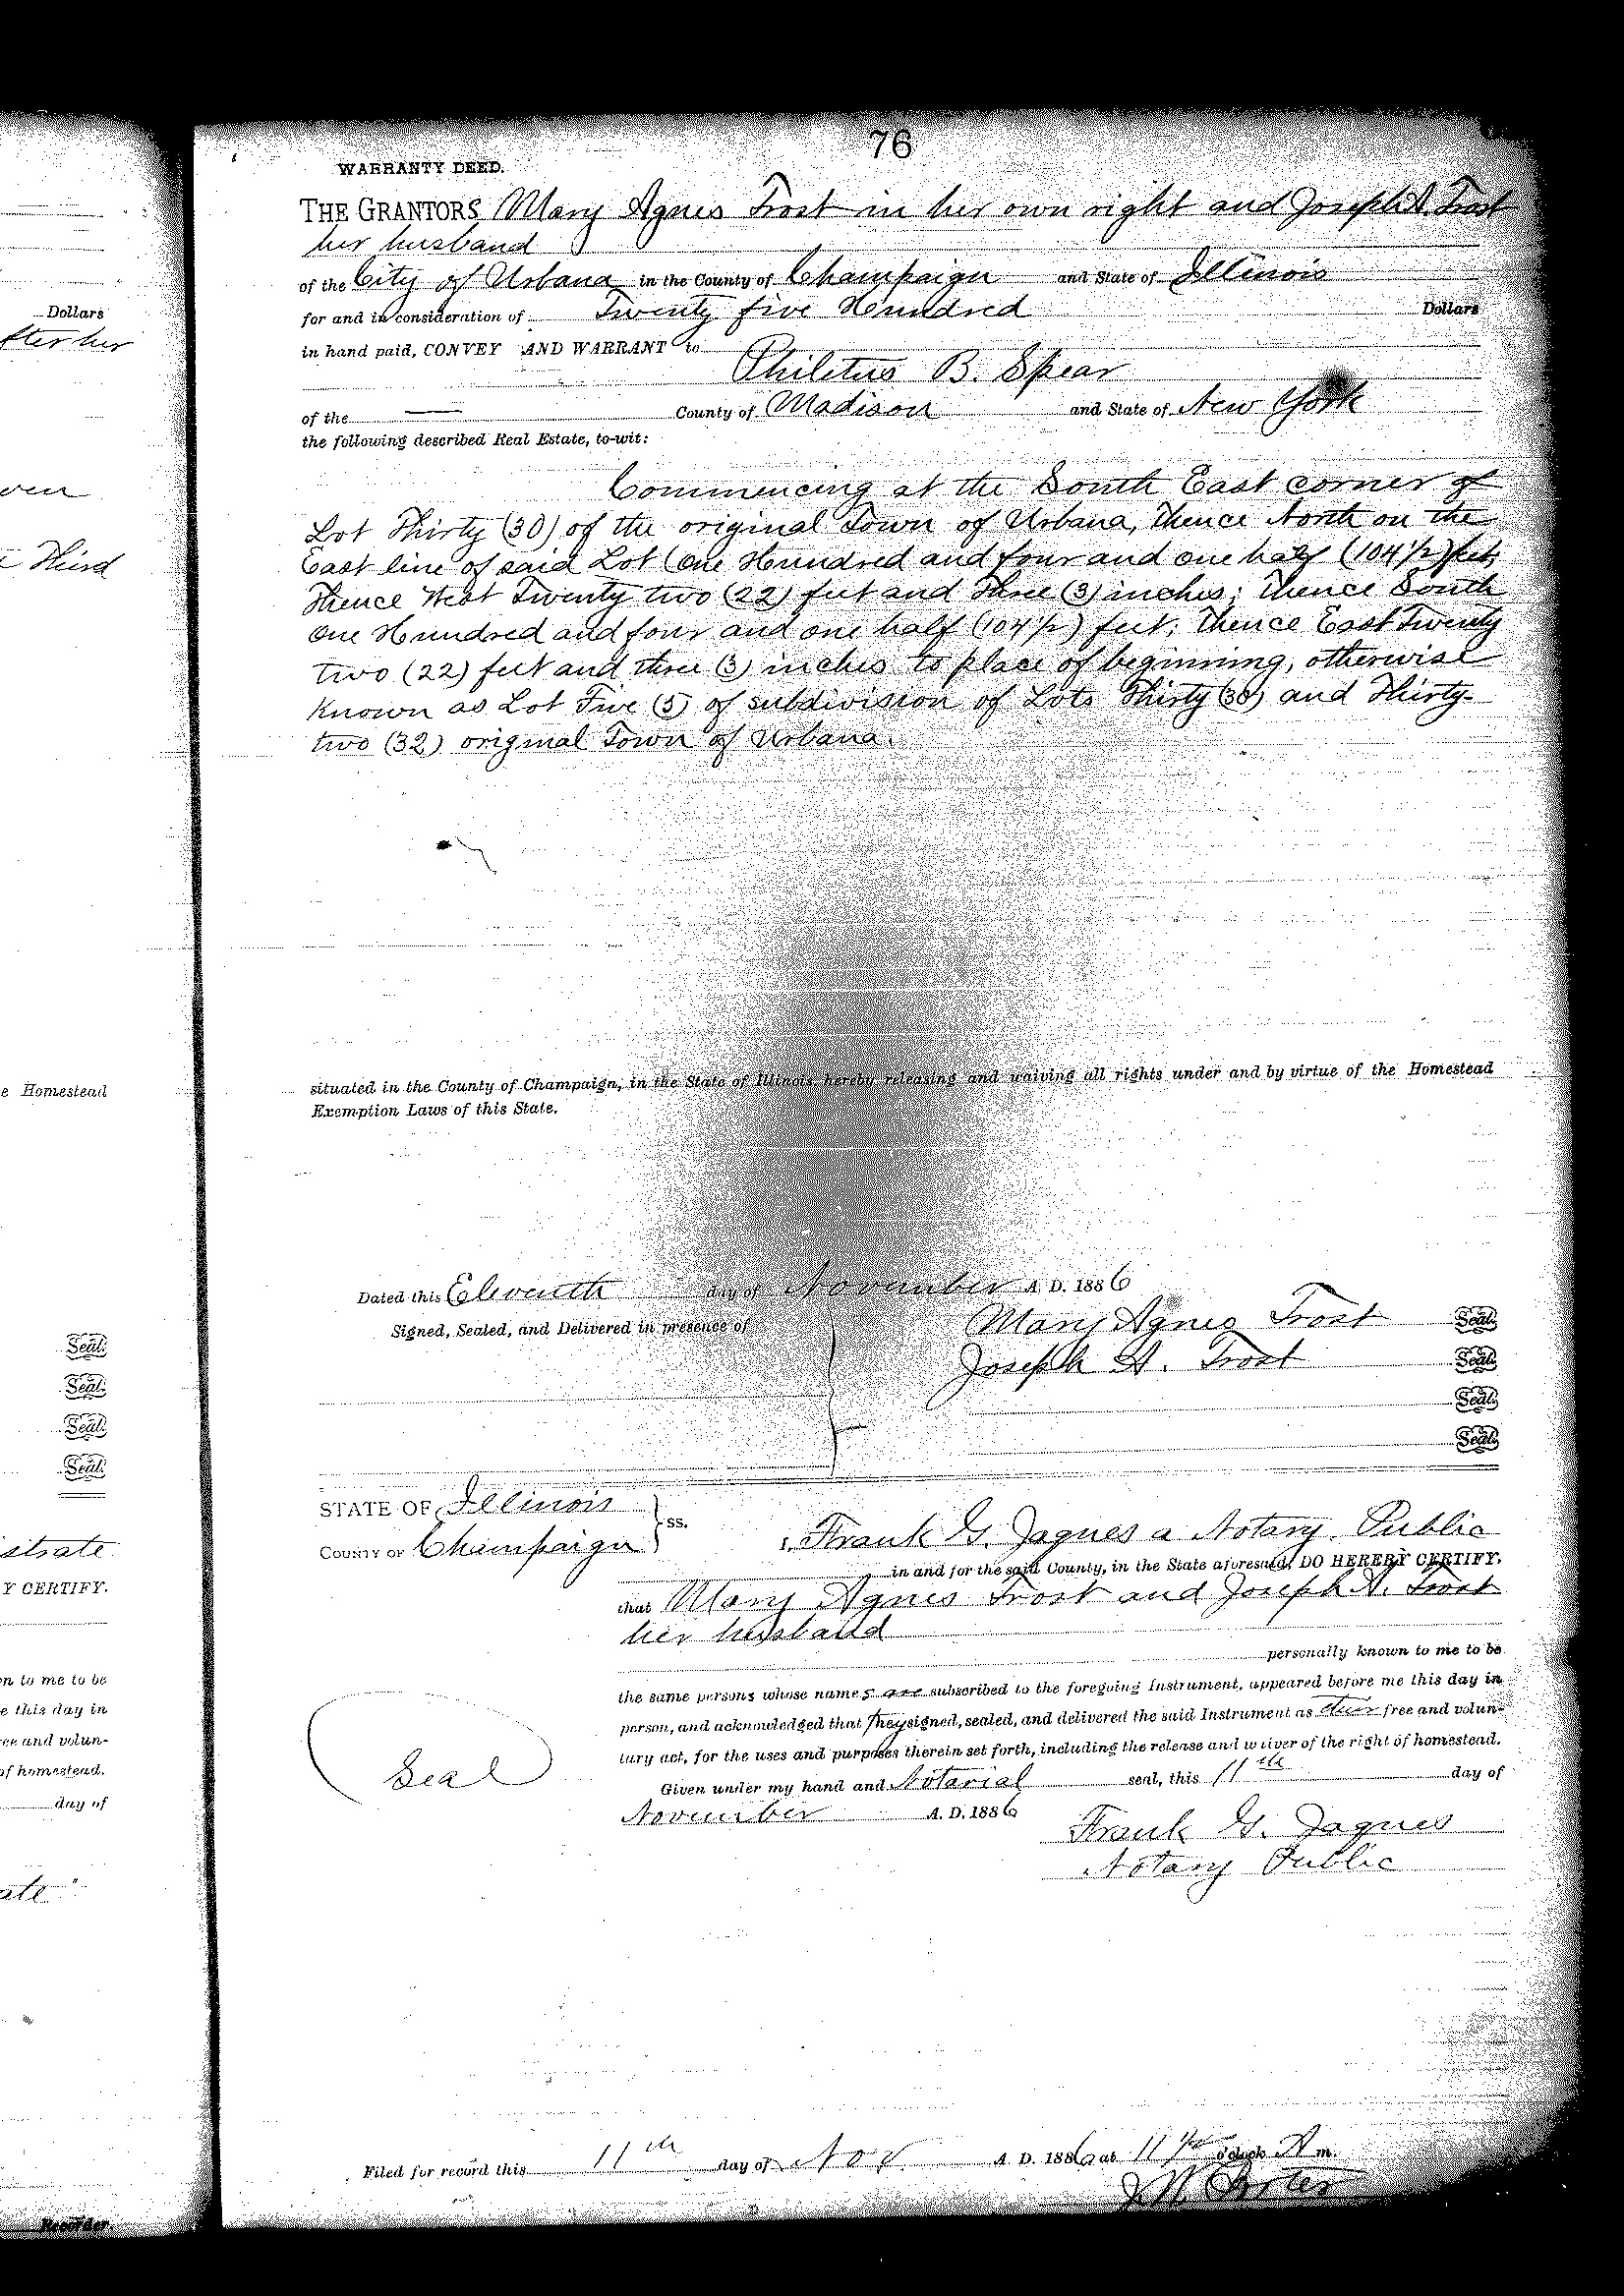 76
WARRANTY DEED.
THE GRANTORS Mary Agnes Trost in her own right and Joseph A. Trost
her husband
of the City of Urbana in the County of Champaign and State of Illinois
for and in consideration of Twenty five Hundred Dollars
in hand paid, CONVEY AND WARRANT to
Philetus B. Spear
of the County of Madison and State of New York
the following described Real Estate, to-wit:
Commencing at the South East corner of
Lot Thirty (30) of the original Town of Urbana, Thence North on the
East line of said Lot One Hundred and four and one half (104 1/2) feet,
Thence West Twenty two (22) feet and Three (3) inches; Thence South
One Hundred and four and one half (104 1/2) feet; Thence East Twenty
two (22) feet and three (3) inches to place of beginning, otherwise
known as Lot Five (5) of subdivision of Lots Thirty (30) and Thirty-
two (32) original Town of Urbana.
situated in the County of Champaign, in the State of Illinois, hereby releasing and waiving all rights under and by virtue of the Homestead
Exemption Laws of this State.
Dated this Eleventh day of November A. D. 1886
Signed, Sealed, and Delivered in presence of
Mary Agnes Trost Seal.
Joseph A. Trost Seal.
Seal.
Seal.
STATE OF Illinois
COUNTY OF Champaign } ss.
I, Frank G. Jaques a Notary Public
in and for the said County, in the State aforesaid, DO HEREBY CERTIFY,
that Mary Agnes Trost and Joseph A. Trost
her husband
personally known to me to be
the same persons whose names are subscribed to the foregoing Instrument, appeared before me this day in
person, and acknowledged that they signed, sealed, and delivered the said Instrument as their free and volun-
tary act, for the uses and purposes therein set forth, including the release and waiver of the right of homestead.
Seal
Given under my hand and Notarial seal, this 11th day of
November A. D. 1886
Frank G. Jaques
Notary Public
Filed for record this 11th day of Nov. A. D. 1886 at 11 o'clock A m.
Dollars
fter her
Third
e Homestead
Seal.
Seal.
Seal.
Seal.
strate
Y CERTIFY.
on to me to be
e this day in
ree and volun-
of homestead.
day of
ate
Recorder.